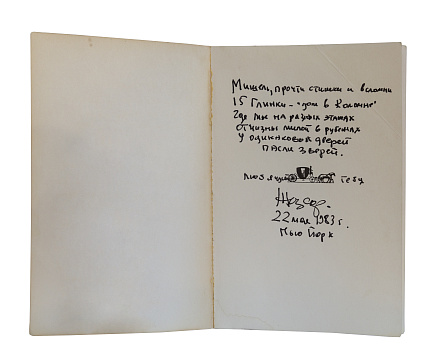 Мишель, прочти стишки и вспомни
15 Глинки – "дом в Коломне"
Где мы на разных этажах
Отчизны милой в рубежах
У одинаковой дверей
Пасли зверей.
Любящий тебя
22 мая 1983 г.
Нью Йорк